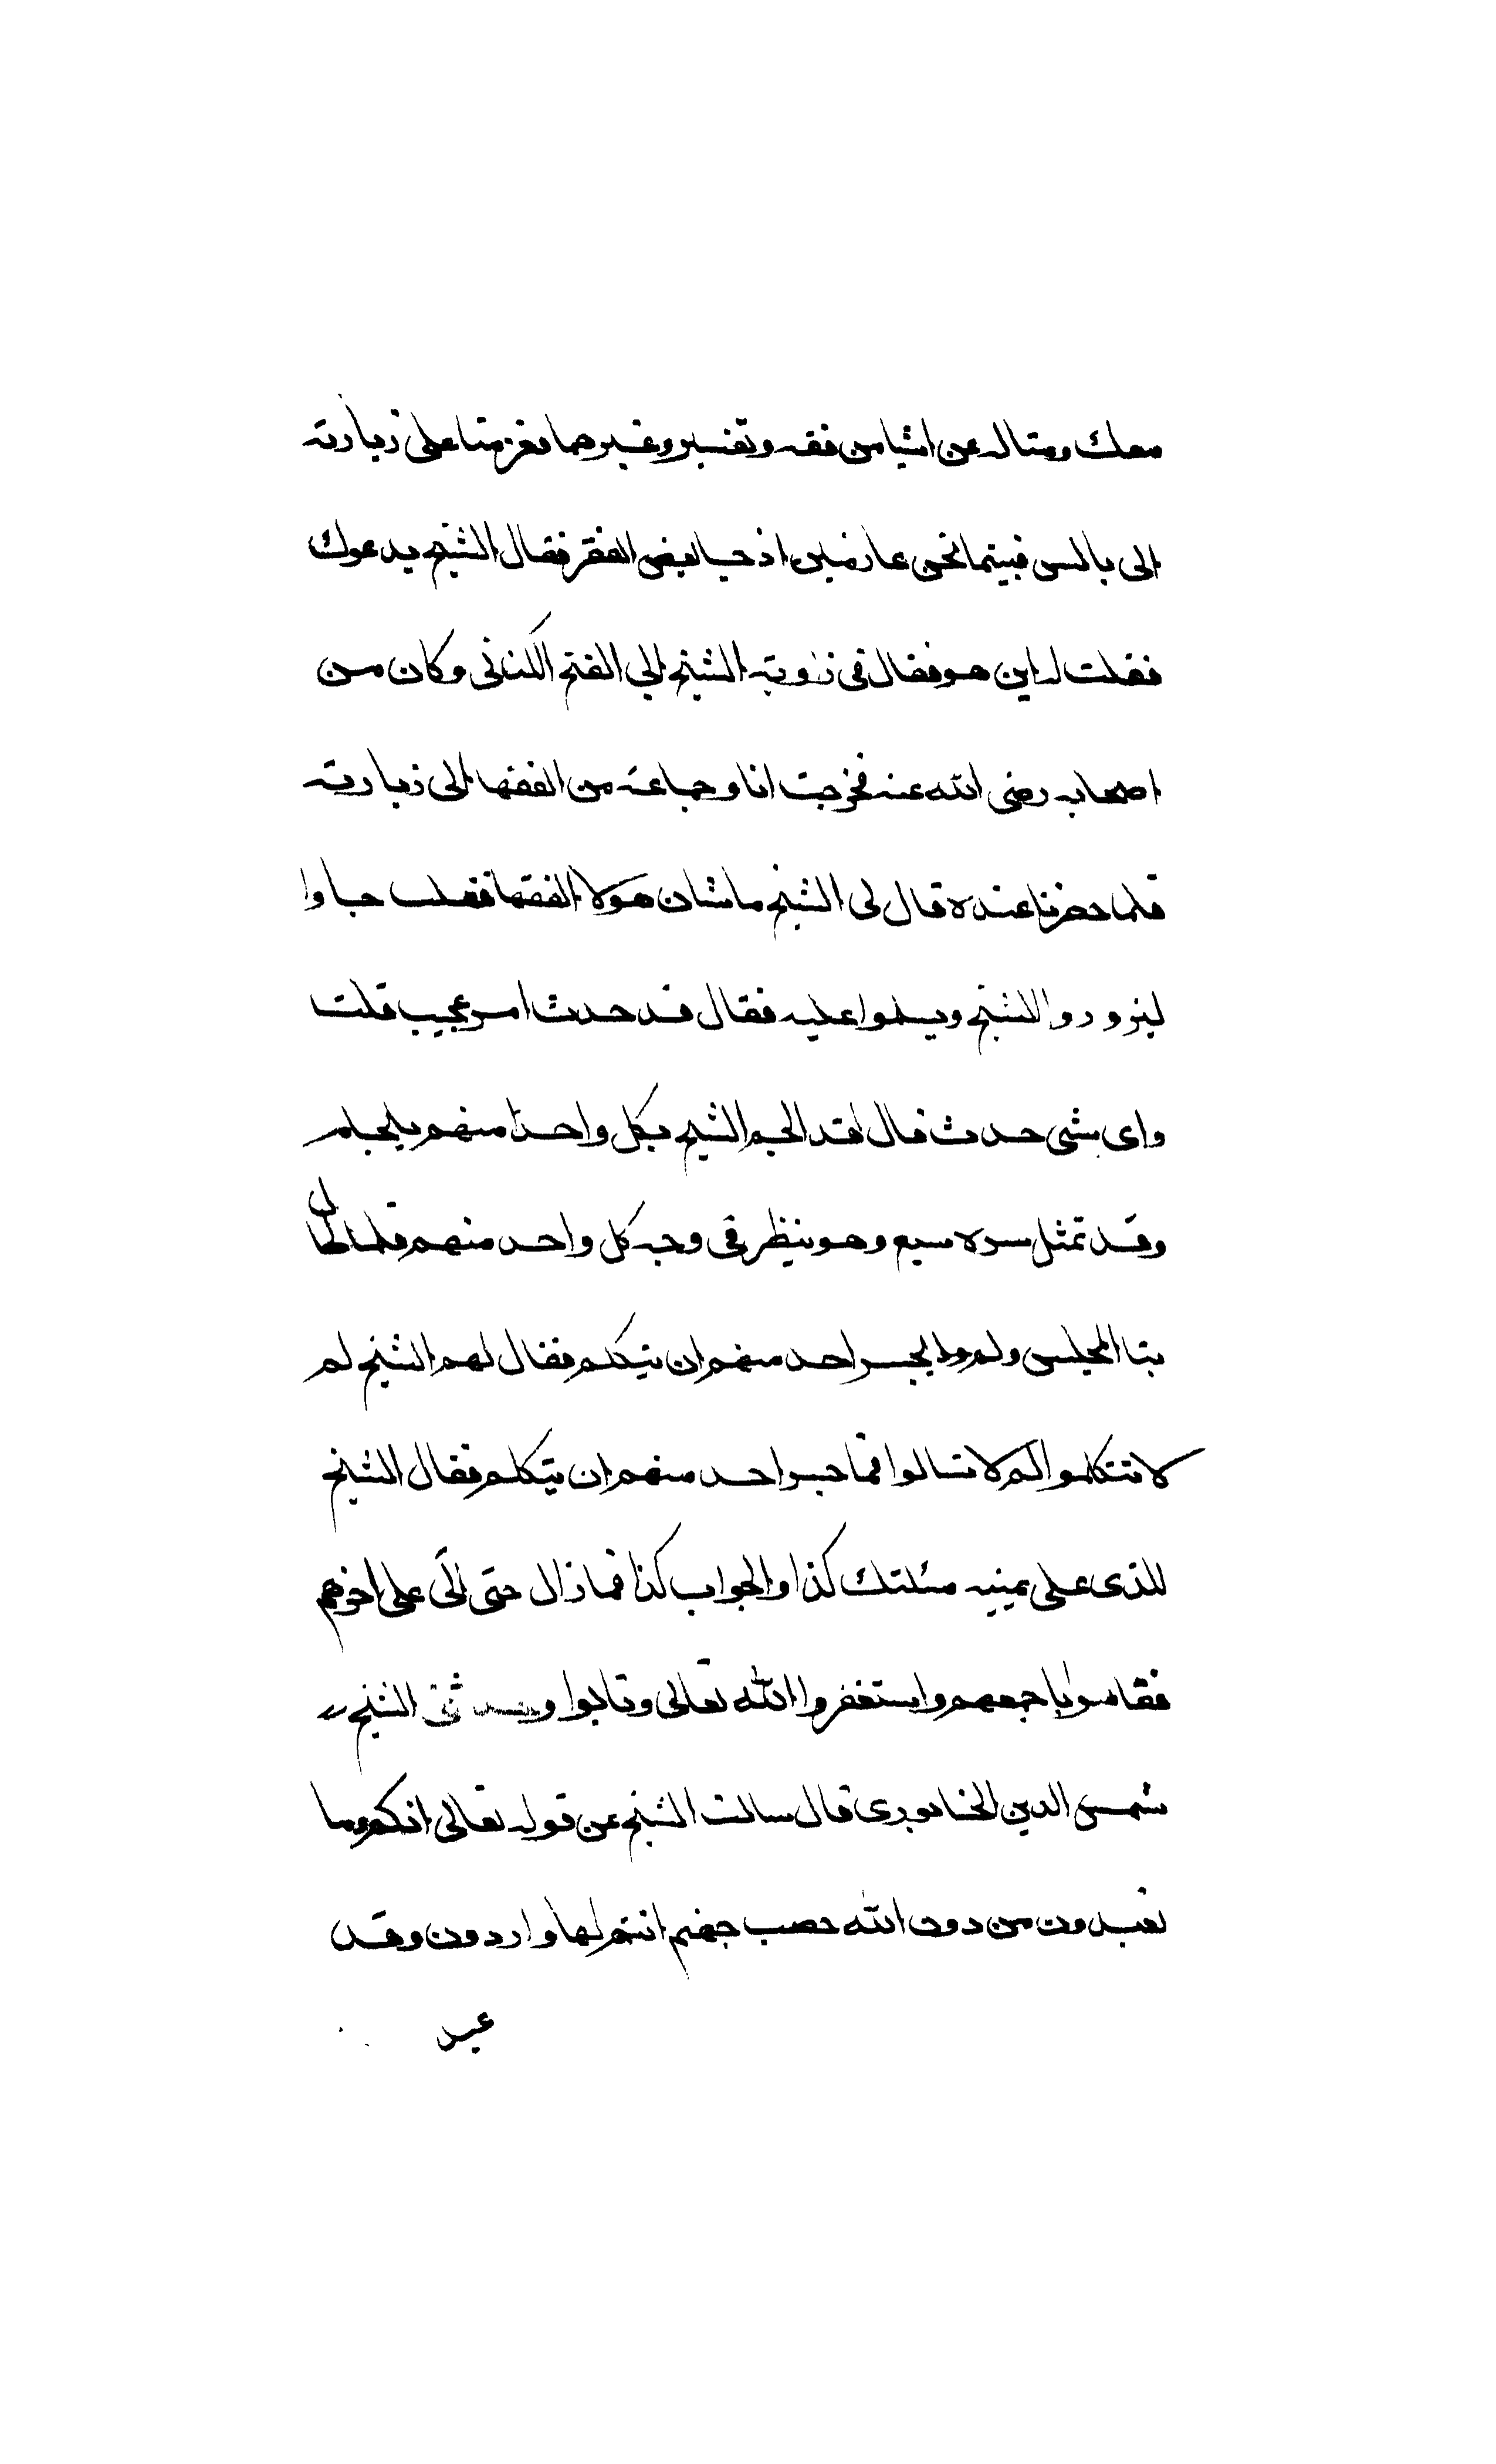 معك ونساله عن اشيا من فقه وتفسير وغيرهما فعزمنا على زيارته
الى بالس فبينما نحن عازمين اذ جا بعض الفقر فقال الشيخ يدعوك
فقلت له اين هو فقال فى زاوية الشيخ ابي الفتح الكنانى وكان من
اصحابه رضى الله عنه فخرجت انا وجماعة من الفقها الى زيارته
فلما حضرنا عنده قال لى الشيخ ما شان هولا الفقها فقلت جاوا
ليزوروا الشيخ ويسلموا عليه فقال قد حدث امر عجيب قلت
واى شى حدث قال لقد الجم الشيخ بكل واحدا منهم بلجام
وقد تمثل سره سبع وهو ينظر فى وجه كل واحد منهم فلما طال
بنا المجلس ولم يجسر احد منهم ان يتكلم فقال لهم الشيخ لم
لا تتكلموا لم لا تسالوا فما جسر احد منهم ان يتكلم فقال الشيخ
للذى على يمينه مسئلتك كذا والجواب كذا فما زال حتى اتى على اخرهم
فقاموا باجمعهم واستغفروا الله تعالى وتابوا وحدثنى الشيخ
شمس الدين الخابورى قال سالت الشيخ عن قوله تعالى انكم وما
تعبدون من دون الله حصب جهنم انتم لها واردون وقد
عبد